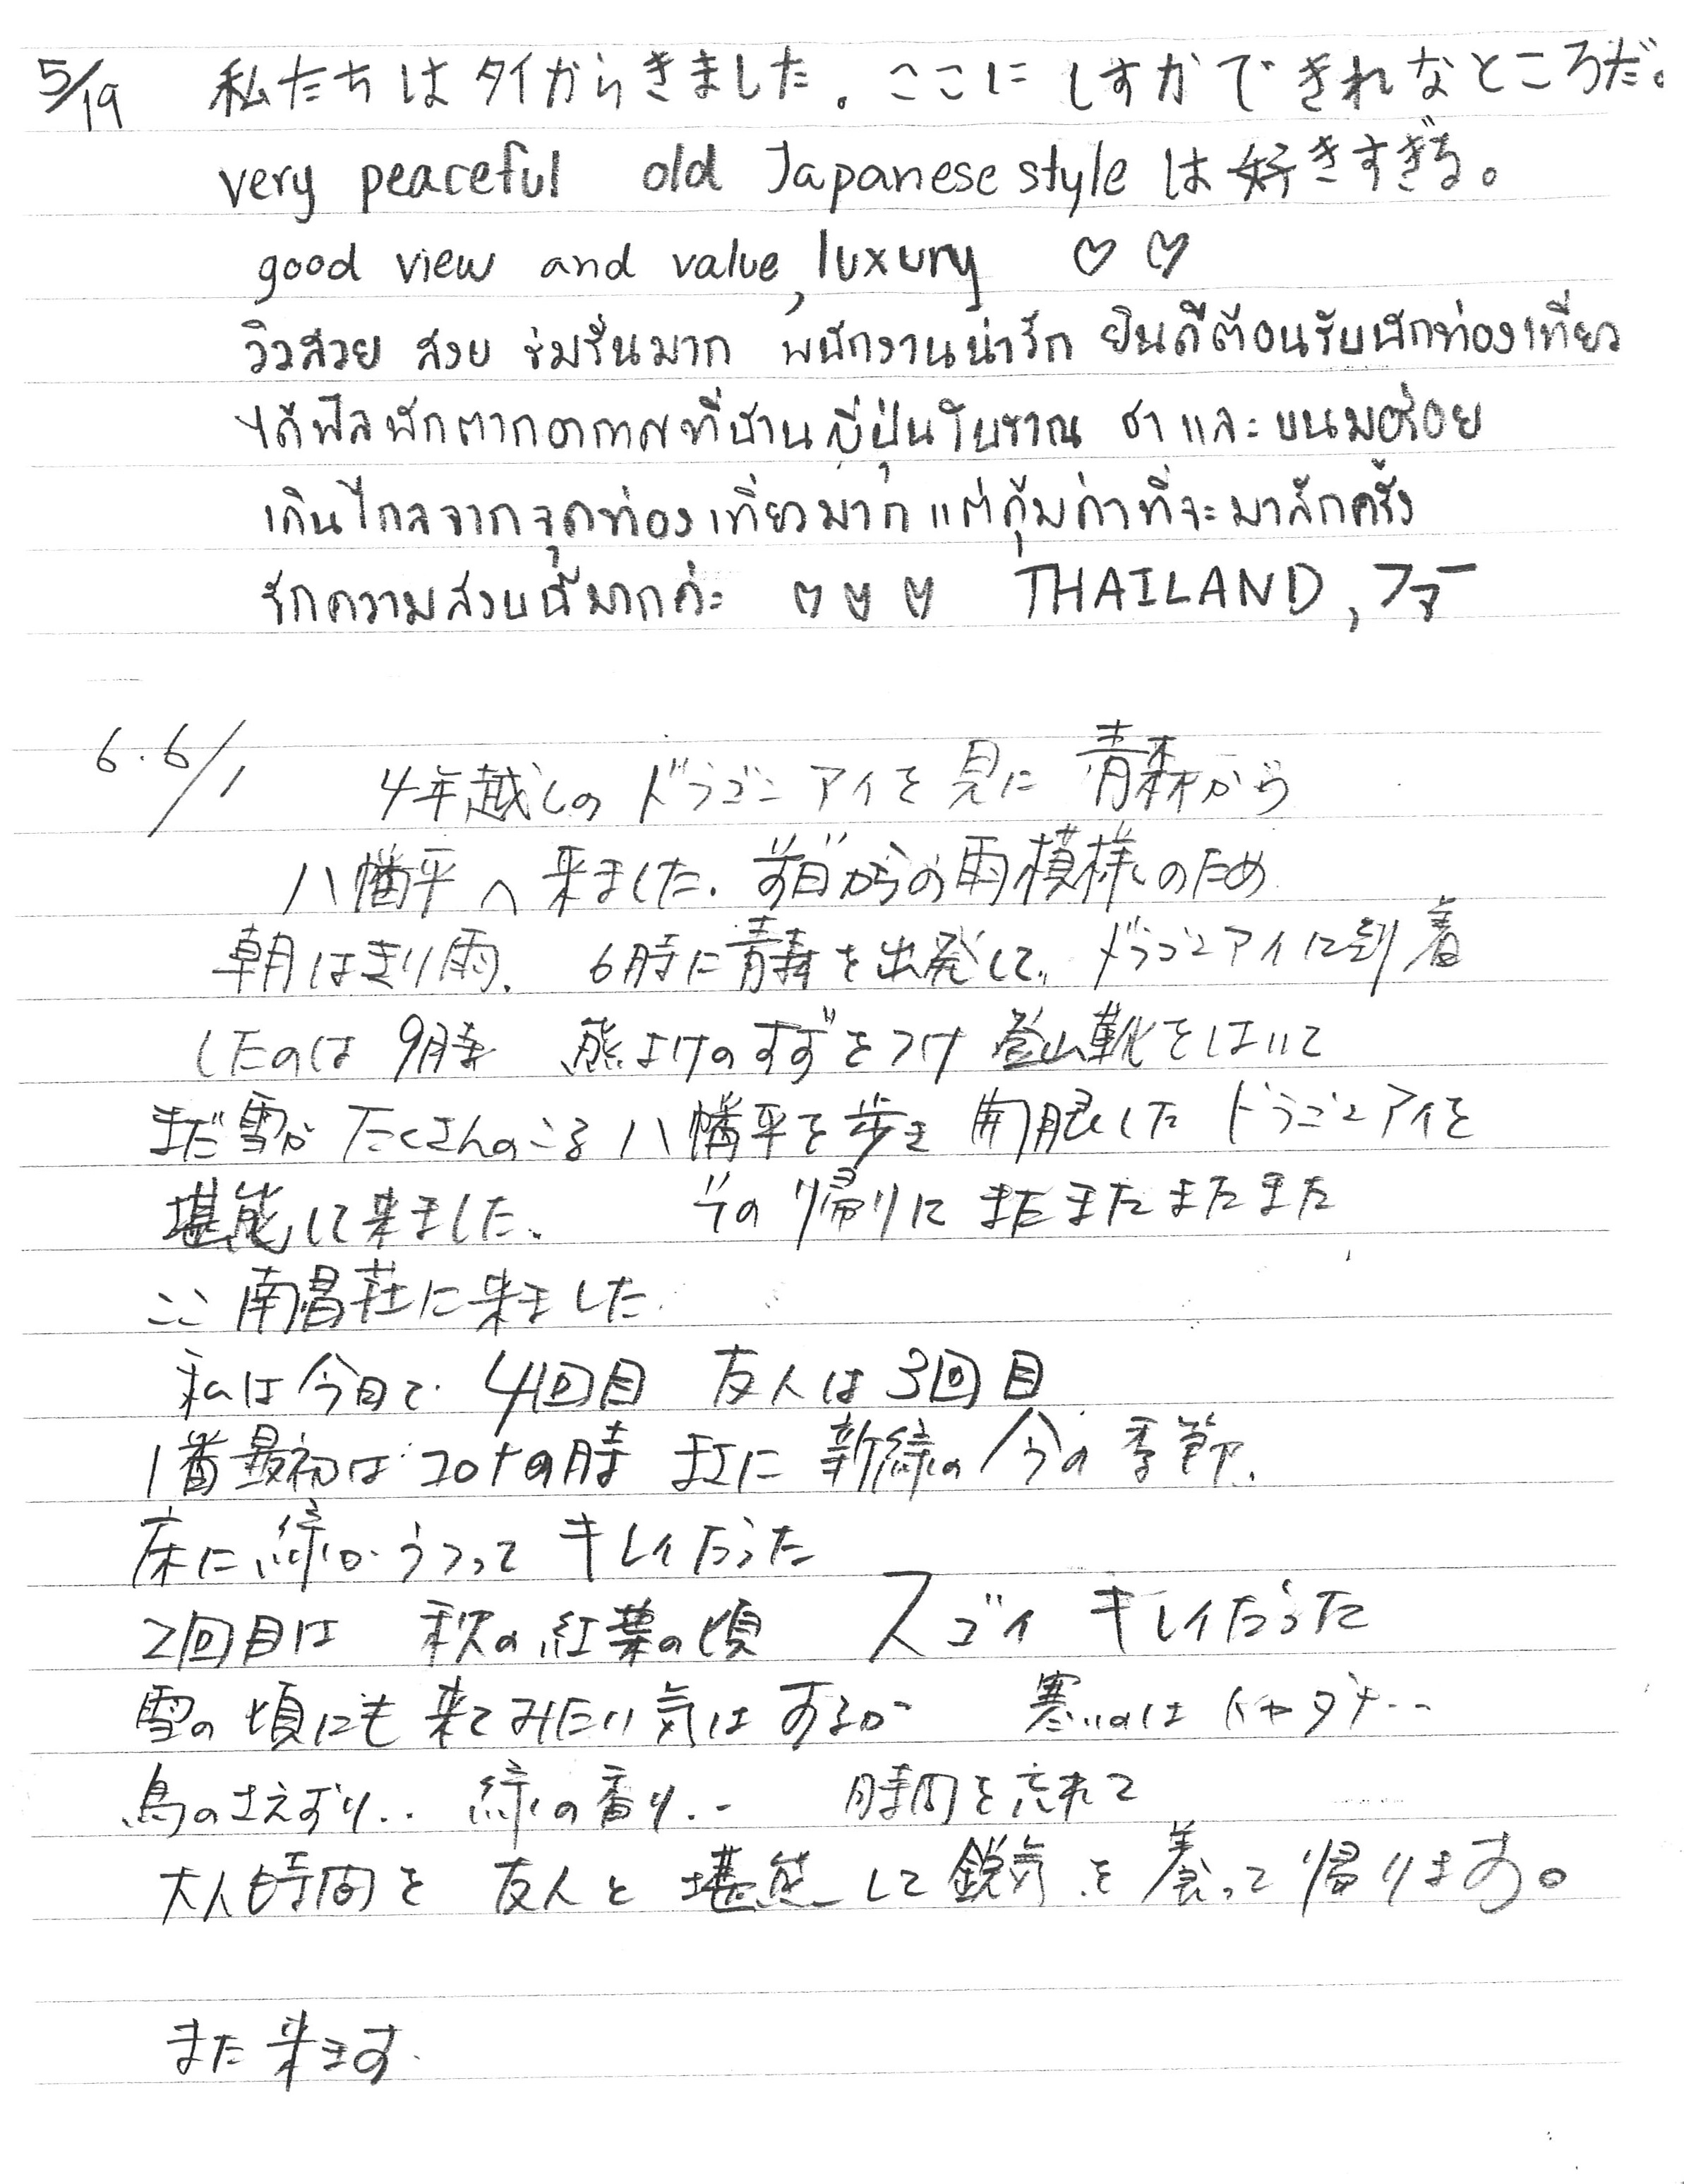 5/19 私たちはタイからきました。ここにしすかできれなところだ。
very peaceful old Japanese style は好きすぎる。
good view and value, luxury ♡ ♡
วิวสวย สงบ ร่มรื่นมาก พนักงานน่ารัก ยินดีต้อนรับนักท่องเที่ยว
ได้ฟีลพักตากอากาศที่บ้านญี่ปุ่นโบราณ ชาและขนมอร่อย
เดินไกลจากจุดท่องเที่ยวมาก แต่คุ้มค่าที่จะมาสักครั้ง
รักความสงบนี้มากค่ะ ♡ ♡ ♡ THAILAND,
6.6/1 4年越しのドラゴンアイを見に青森から
八幡平へ来ました. 前日からの雨模様のため
朝はきり雨. 6時に青森を出発して、ドラゴンアイに到着
したのは9時 熊よけのすずをつけ 登山靴をはいて
まだ雪がたくさんのこる八幡平を歩き 開眼したドラゴンアイを
堪能して来ました. その帰りにまたまたまたまた
ここ南昌荘に来ました.
私は今日で4回目 友人は3回目
1番最初はコロナの時 まさに新緑の今の季節.
床に緑がうつってキレイだった
2回目は 秋の紅葉の頃 スゴイ キレイだった
雪の頃にも来てみたい気はするが 寒いのはイヤダナ..
鳥のさえずり.. 緑の香り.. 時間を忘れて
大人時間を 友人と堪能して鋭気を養って帰ります。
また来ます.